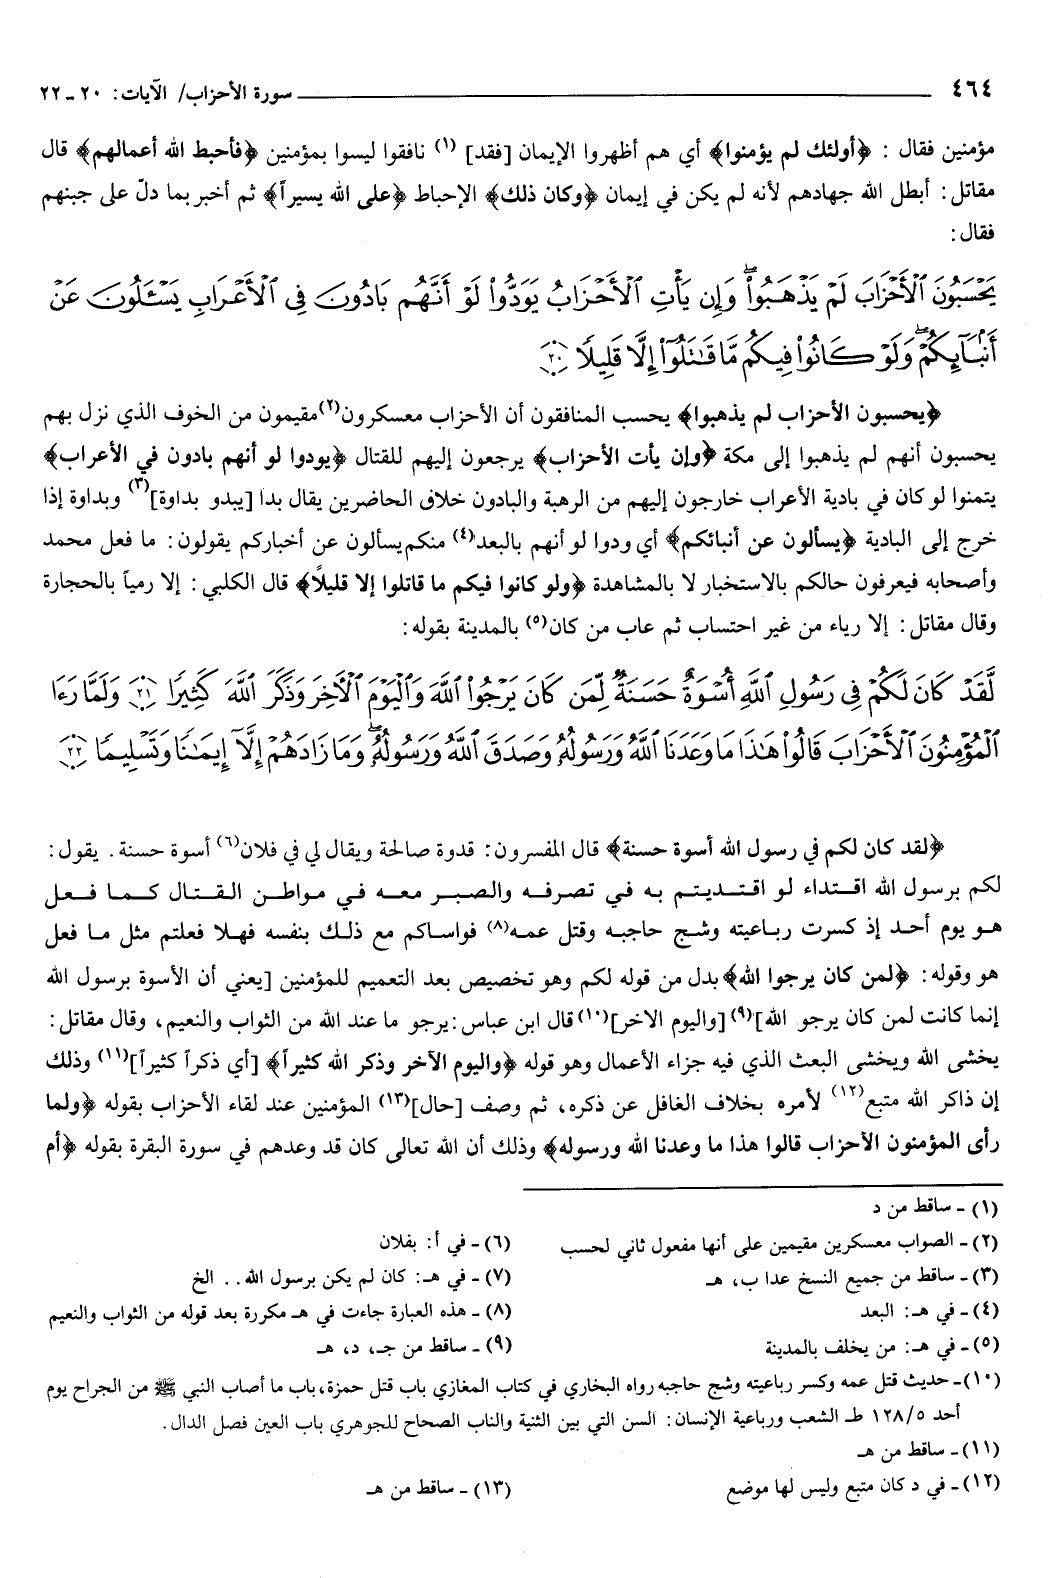 ٤٦٤ سورة الأحزاب/ الآيات: ٢٠ ـ ٢٢
مؤمنين فقال : ﴿أولئك لم يؤمنوا﴾ أي هم أظهروا الإيمان [فقد] (١) نافقوا ليسوا بمؤمنين ﴿فأحبط الله أعمالهم﴾ قال
مقاتل: أبطل الله جهادهم لأنه لم يكن في إيمان ﴿وكان ذلك﴾ الإحباط ﴿على الله يسيراً﴾ ثم أخبر بما دلّ على جبنهم
فقال:
يَحْسَبُونَ ٱلْأَحْزَابَ لَمْ يَذْهَبُوا۟ۖ وَإِن يَأْتِ ٱلْأَحْزَابُ يَوَدُّوا۟ لَوْ أَنَّهُم بَادُونَ فِى ٱلْأَعْرَابِ يَسْـَٔلُونَ عَنْ
أَنۢبَآئِكُمْۖ وَلَوْ كَانُوا۟ فِيكُم مَّا قَـٰتَلُوٓا۟ إِلَّا قَلِيلًا ٢٠
﴿يحسبون الأحزاب لم يذهبوا﴾ يحسب المنافقون أن الأحزاب معسكرون(٢)مقيمون من الخوف الذي نزل بهم
يحسبون أنهم لم يذهبوا إلى مكة ﴿وإن يأت الأحزاب﴾ يرجعون إليهم للقتال ﴿يودوا لو أنهم بادون في الأعراب﴾
يتمنوا لو كان في بادية الأعراب خارجون إليهم من الرهبة والبادون خلاف الحاضرين يقال بدا [يبدو بداوة](٣) وبداوة إذا
خرج إلى البادية ﴿يسألون عن أنبائكم﴾ أي ودوا لو أنهم بالبعد(٤) منكم يسألون عن أخباركم يقولون: ما فعل محمد
وأصحابه فيعرفون حالكم بالاستخبار لا بالمشاهدة ﴿ولو كانوا فيكم ما قاتلوا إلا قليلًا﴾ قال الكلبي : إلا رمياً بالحجارة
وقال مقاتل: إلا رياء من غير احتساب ثم عاب من كان(٥) بالمدينة بقوله:
لَّقَدْ كَانَ لَكُمْ فِى رَسُولِ ٱللَّهِ أُسْوَةٌ حَسَنَةٌ لِّمَن كَانَ يَرْجُوا۟ ٱللَّهَ وَٱلْيَوْمَ ٱلْـَٔاخِرَ وَذَكَرَ ٱللَّهَ كَثِيرًا ٢١ وَلَمَّا رَءَا
ٱلْمُؤْمِنُونَ ٱلْأَحْزَابَ قَالُوا۟ هَـٰذَا مَا وَعَدَنَا ٱللَّهُ وَرَسُولُهُۥ وَصَدَقَ ٱللَّهُ وَرَسُولُهُۥۚ وَمَا زَادَهُمْ إِلَّآ إِيمَـٰنًا وَتَسْلِيمًا ٢٢
﴿لقد كان لكم في رسول الله أسوة حسنة﴾ قال المفسرون: قدوة صالحة ويقال لي في فلان(٦) أسوة حسنة. يقول:
لكم برسول الله اقتداء لو اقتديتم به في تصرفه والصبر معه في مواطن القتال كما فعل
هو يوم أحد إذ كسرت رباعيته وشج حاجبه وقتل عمه(٨) فواساكم مع ذلك بنفسه فهلا فعلتم مثل ما فعل
هو وقوله: ﴿لمن كان يرجوا الله﴾ بدل من قوله لكم وهو تخصيص بعد التعميم للمؤمنين [يعني أن الأسوة برسول الله
إنما كانت لمن كان يرجو الله](٩) [واليوم الاخر](١٠)قال ابن عباس:يرجو ما عند الله من الثواب والنعيم، وقال مقاتل:
يخشى الله ويخشى البعث الذي فيه جزاء الأعمال وهو قوله ﴿واليوم الآخر وذكر الله كثيراً﴾ [أي ذكراً كثيراً](١١) وذلك
إن ذاكر الله متبع(١٢) لأمره بخلاف الغافل عن ذكره، ثم وصف [حال](١٣) المؤمنين عند لقاء الأحزاب بقوله ﴿ولما
رأى المؤمنون الأحزاب قالوا هذا ما وعدنا الله ورسوله﴾ وذلك أن الله تعالى كان قد وعدهم في سورة البقرة بقوله ﴿أم
(١) ـ ساقط من د
(٢) ـ الصواب معسكرين مقيمين على أنها مفعول ثاني لحسب (٦) ـ في أ: بفلان
(٣) ـ ساقط من جميع النسخ عدا ب، هـ (٧) ـ في هـ: كان لم يكن برسول الله.. الخ
(٤) ـ في هـ: البعد (٨) ـ هذه العبارة جاءت في هـ مكررة بعد قوله من الثواب والنعيم
(٥) ـ في هـ: من يخلف بالمدينة (٩) ـ ساقط من جـ، د، هـ
(١٠) ـ حديث قتل عمه وكسر رباعيته وشج حاجبه رواه البخاري في كتاب المغازي باب قتل حمزة، باب ما أصاب النبي ﷺ من الجراح يوم
أحد ١٢٨/٥ طـ الشعب ورباعية الإنسان: السن التي بين الثنية والناب الصحاح للجوهري باب العين فصل الدال.
(١١) ـ ساقط من هـ
(١٢) ـ في د كان متبع وليس لها موضع (١٣) ـ ساقط من هـ